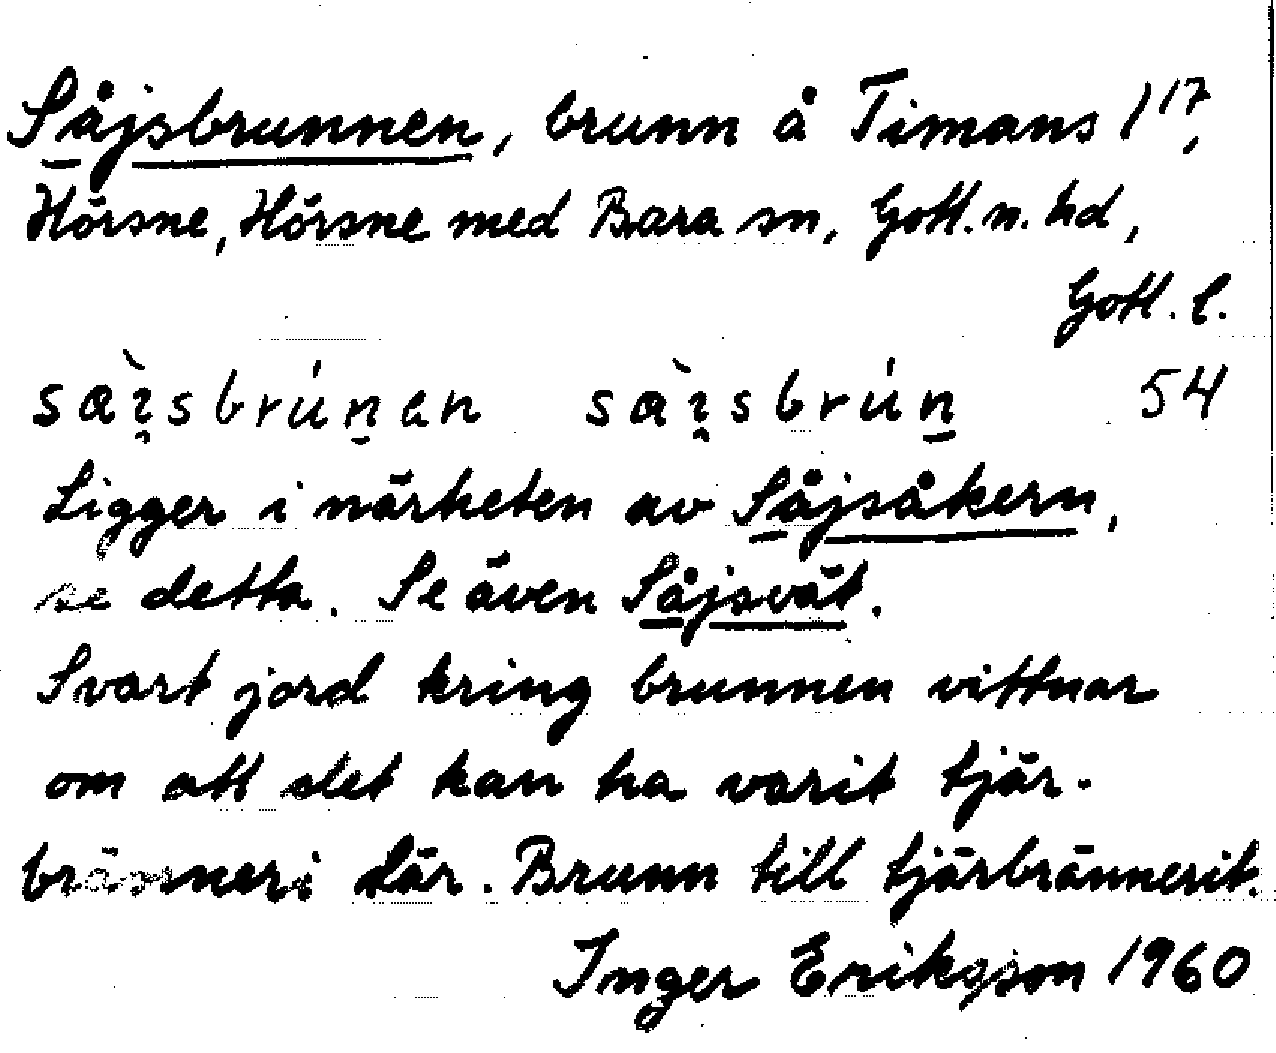 Såjsbrunnen, brunn å Timans 1¹⁷,
Hörsne, Hörsne med Bara sn, Gotl. n. hd,
Gotl. l.
sàɪ̯sbrún̲en sàɪ̯sbrún̲ 54
Ligger i närheten av Såjsåkern,
se detta. Se även Såjsvät.
Svart jord kring brunnen vittnar
om att det kan ha varit tjär-
bränneri där. Brunn till tjärbränneriet.
Inger Eriksson 1960